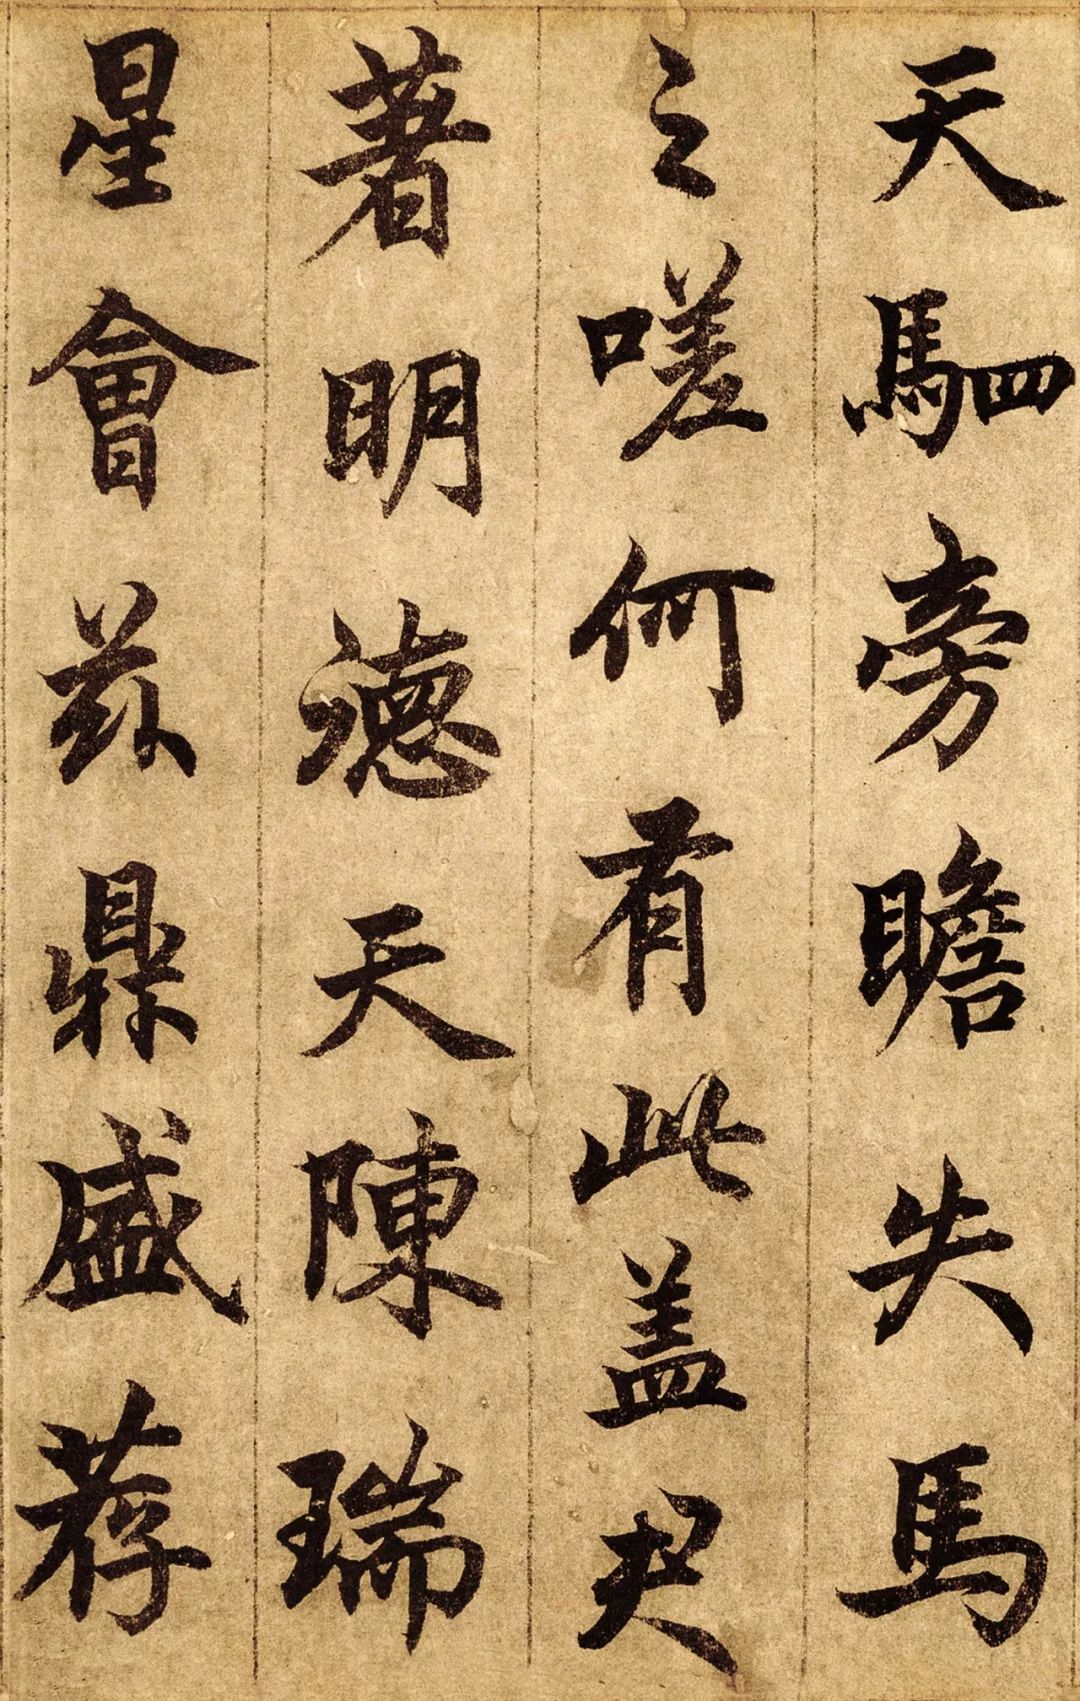 天駟旁瞻失馬
之嗟何有此蓋
著明德天陳瑞
星會茲鼎盛荐